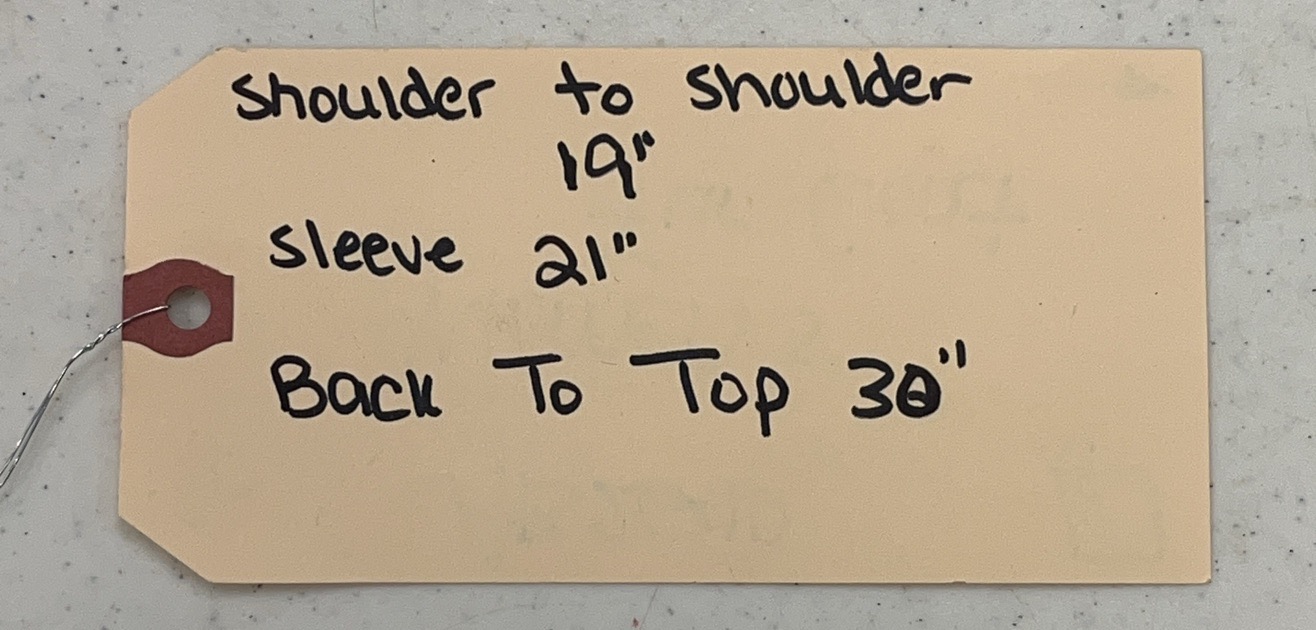 Shoulder to Shoulder
19"
Sleeve 21"
Back To Top 30"